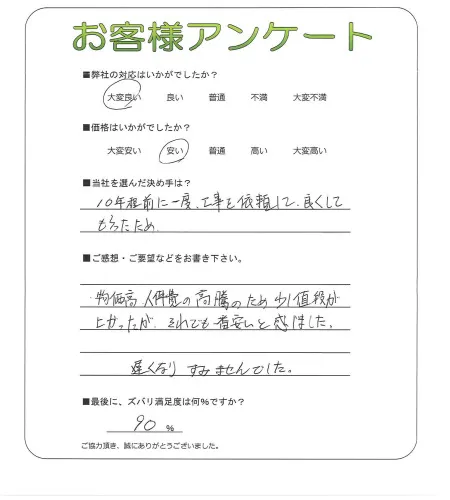 お客様アンケート
■弊社の対応はいかがでしたか？
大変良い 良い 普通 不満 大変不満
■価格はいかがでしたか？
大変安い 安い 普通 高い 大変高い
■当社を選んだ決め手は？
10年程前に一度、工事を依頼して、良くして
もらったため
■ご感想・ご要望などをお書き下さい。
物価高、人件費の高騰のため少し値段が
上がったが、それでも一番安いと感じました。
遅くなりすみませんでした。
■最後に、ズバリ満足度は何%ですか？
90 %
ご協力頂き、誠にありがとうございました。